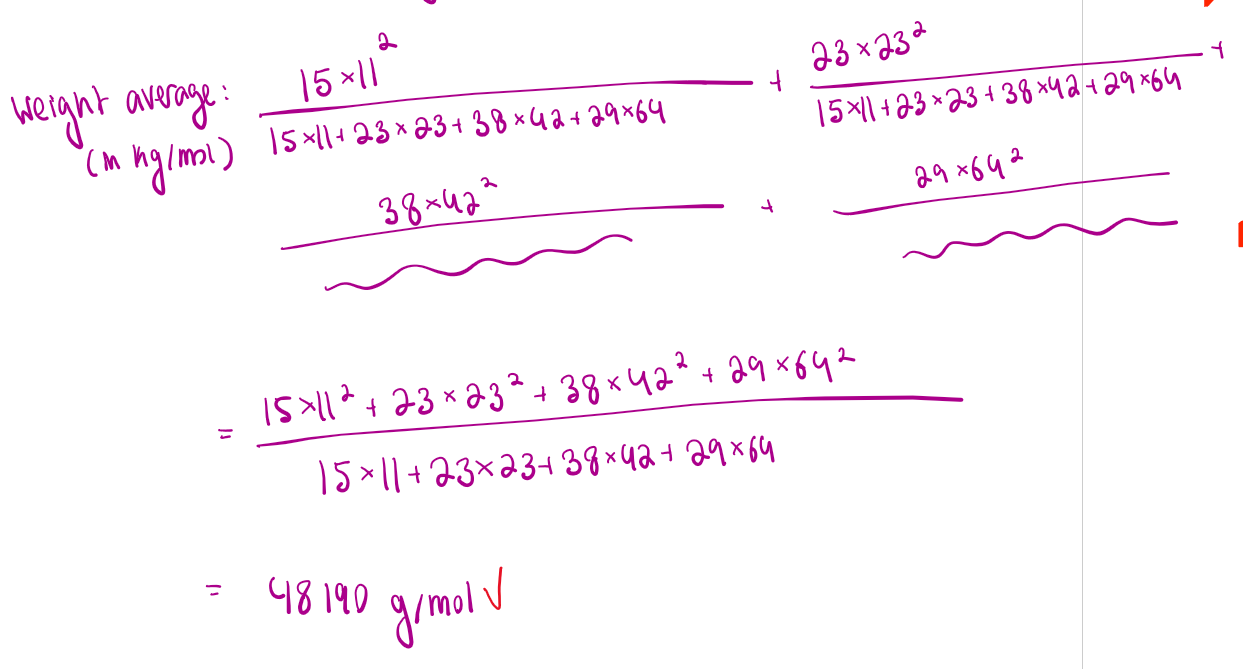 weight average: 15×11² / 15×11+23×23+38×42+29×64 + 23×23² / 15×11+23×23+38×42+29×64 +
(in kg/mol)
38×42² + 29×64²
= 15×11² + 23×23² + 38×42² + 29×64² / 15×11+23×23+38×42+29×64
= 48190 g/mol ✓